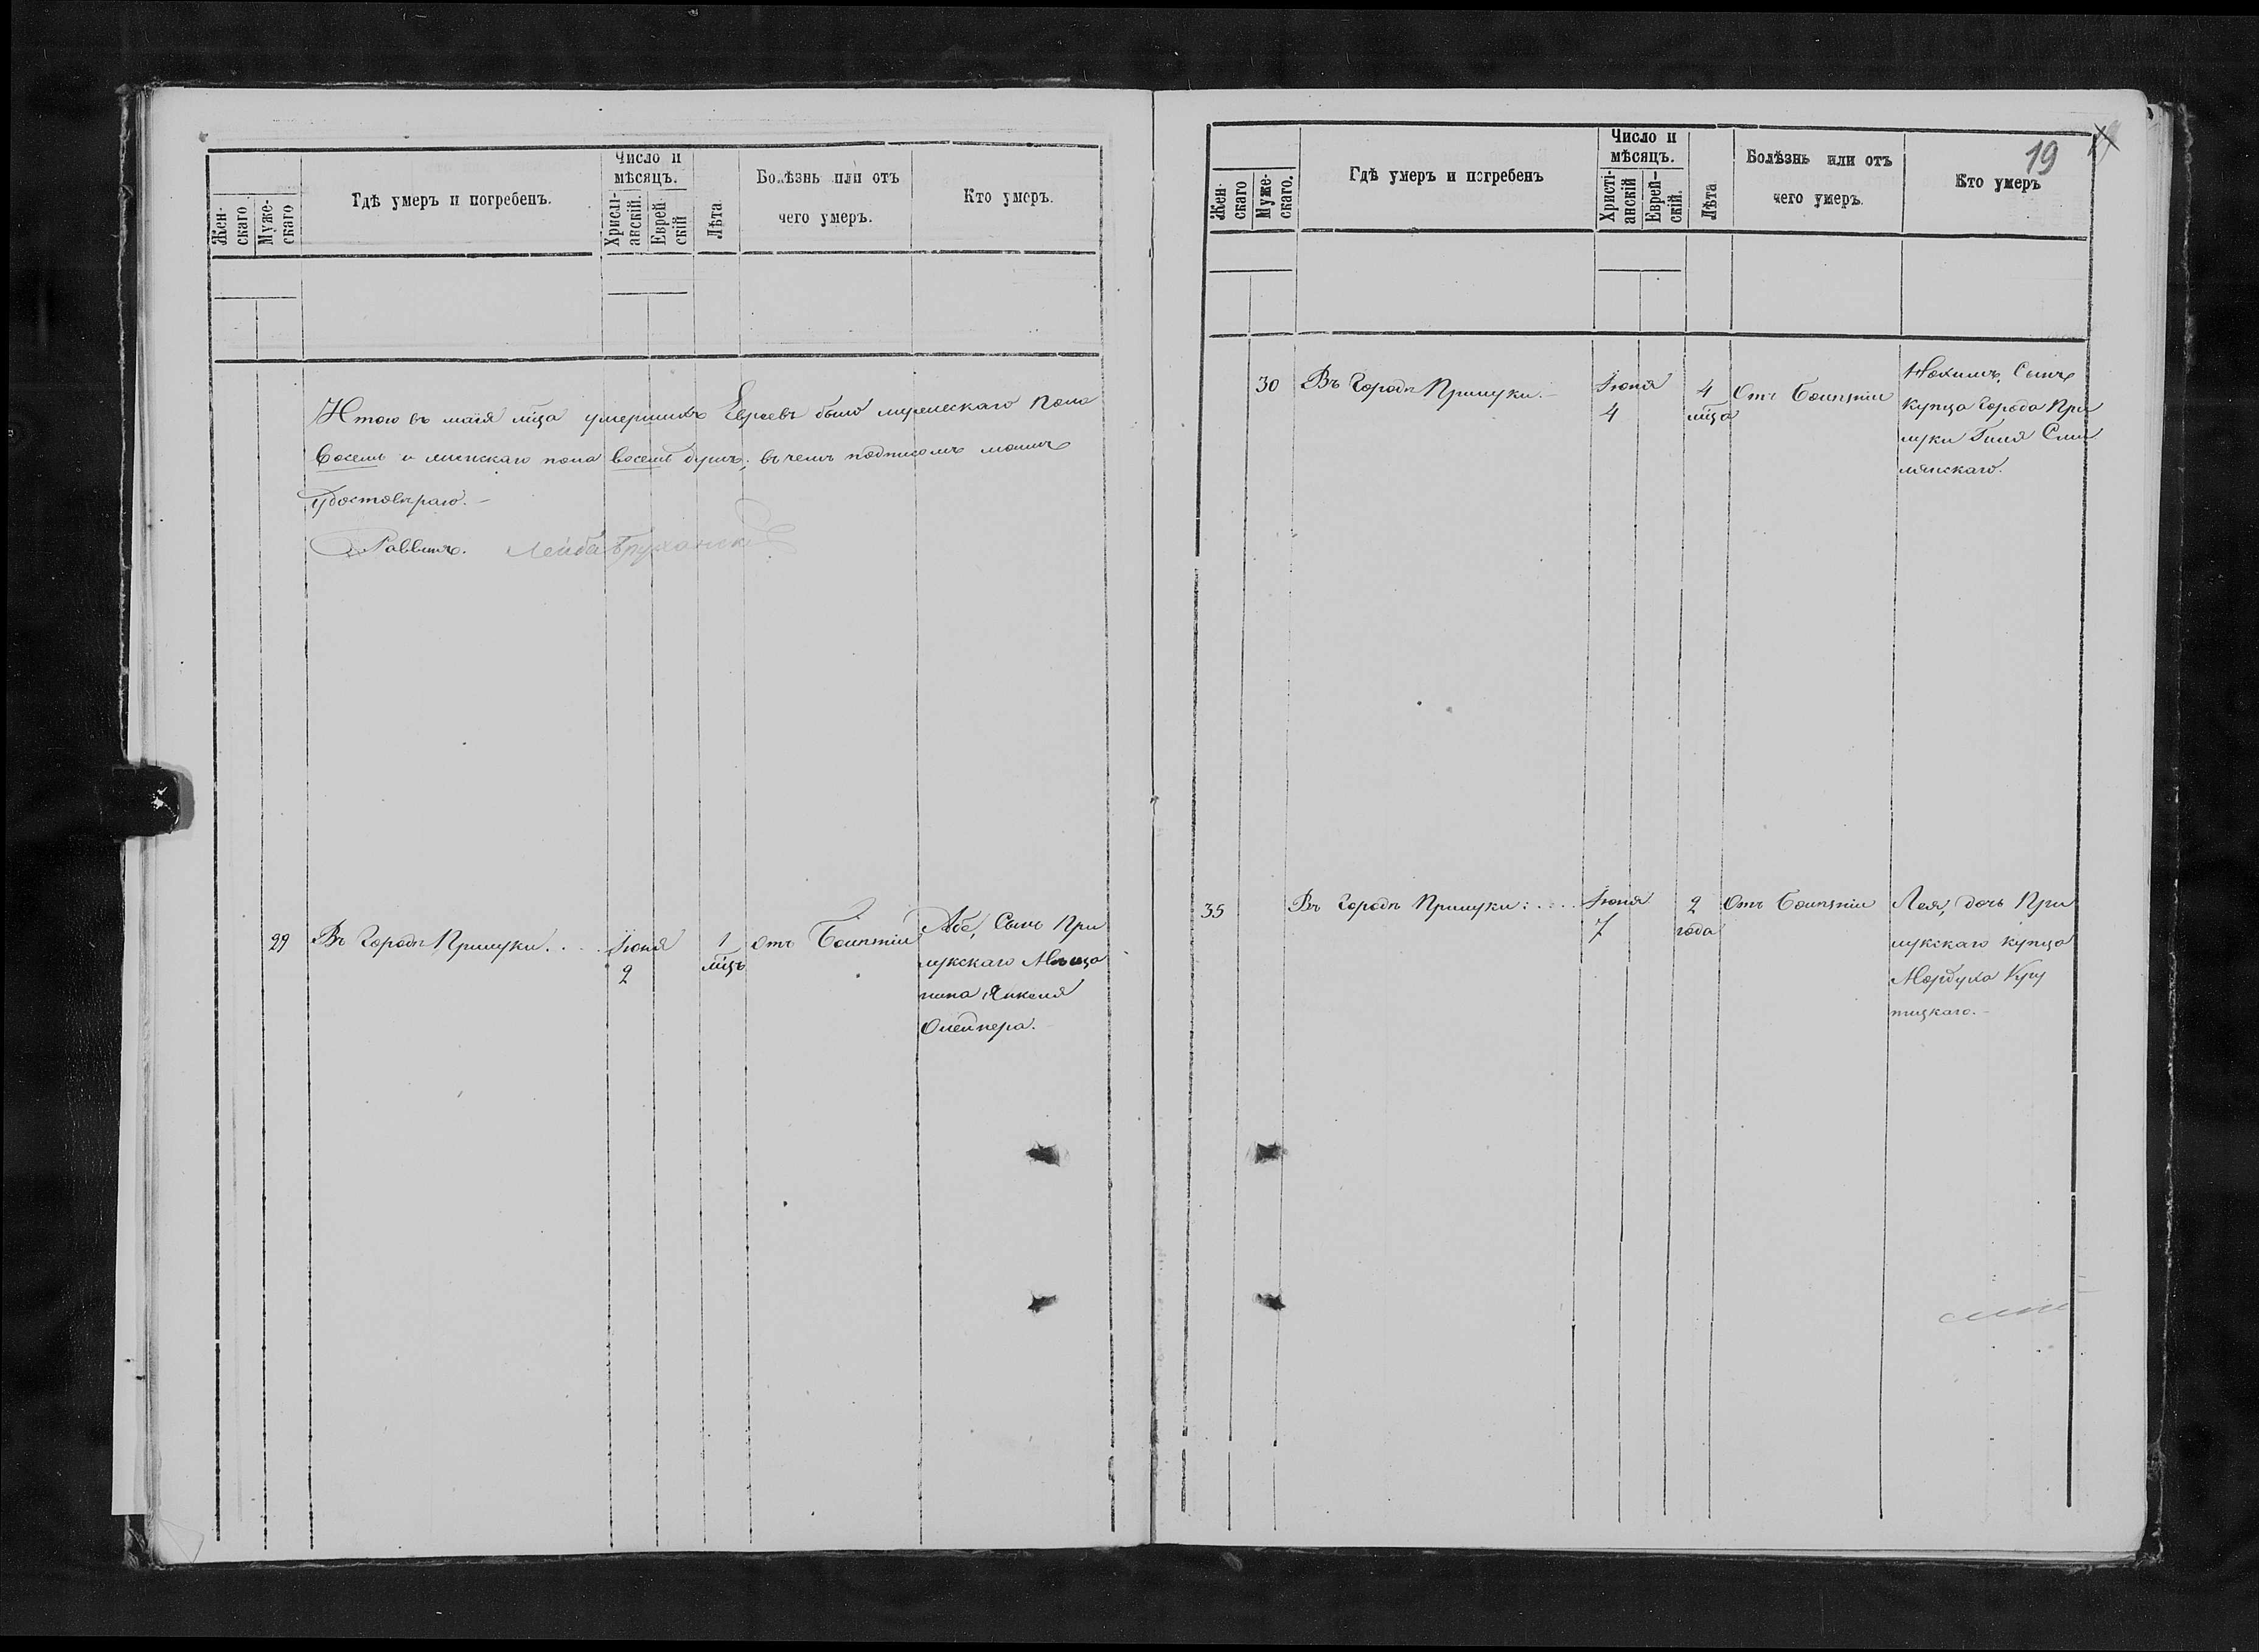 Жен-
скаго
Муже-
скаго
Гдѣ умеръ и погребенъ.
Число и
мѣсяцъ.
Христі-
анскій.
Еврей-
скій
Лѣта
Болѣзнь или отъ
чего умеръ.
Кто умеръ.
Итого въ маія мѣца умершихъ Евреевъ было мужескаго пола
восемь и женскаго пола восемь душъ; въ чемъ подписомъ моимъ
удостовѣраю.-
Раввинъ.
29
Въ Городѣ Прилуки. . . .
Іюня
2
1
мѣцъ
отъ
Абе, Сынъ При
лукскаго Мѣща
нина Янкеля
Олейнера.
19
Жен-
скаго
Муже-
скаго.
Гдѣ умеръ и погребенъ
Число и
мѣсяцъ.
Христі-
анскій
Еврей-
скій.
Лѣта
Болѣзнь или отъ
чего умеръ.
Кто умеръ
30
Въ Городѣ Прилуки.-
Іюня
4
4
мѣца
Отъ
Нохимъ, Сынъ
купца Города При
луки
30
35
Въ Городѣ Прилуки: . . . .
Іюня
7
2
года
Отъ
Лея, дочь При
лукскаго купца
Мордуха